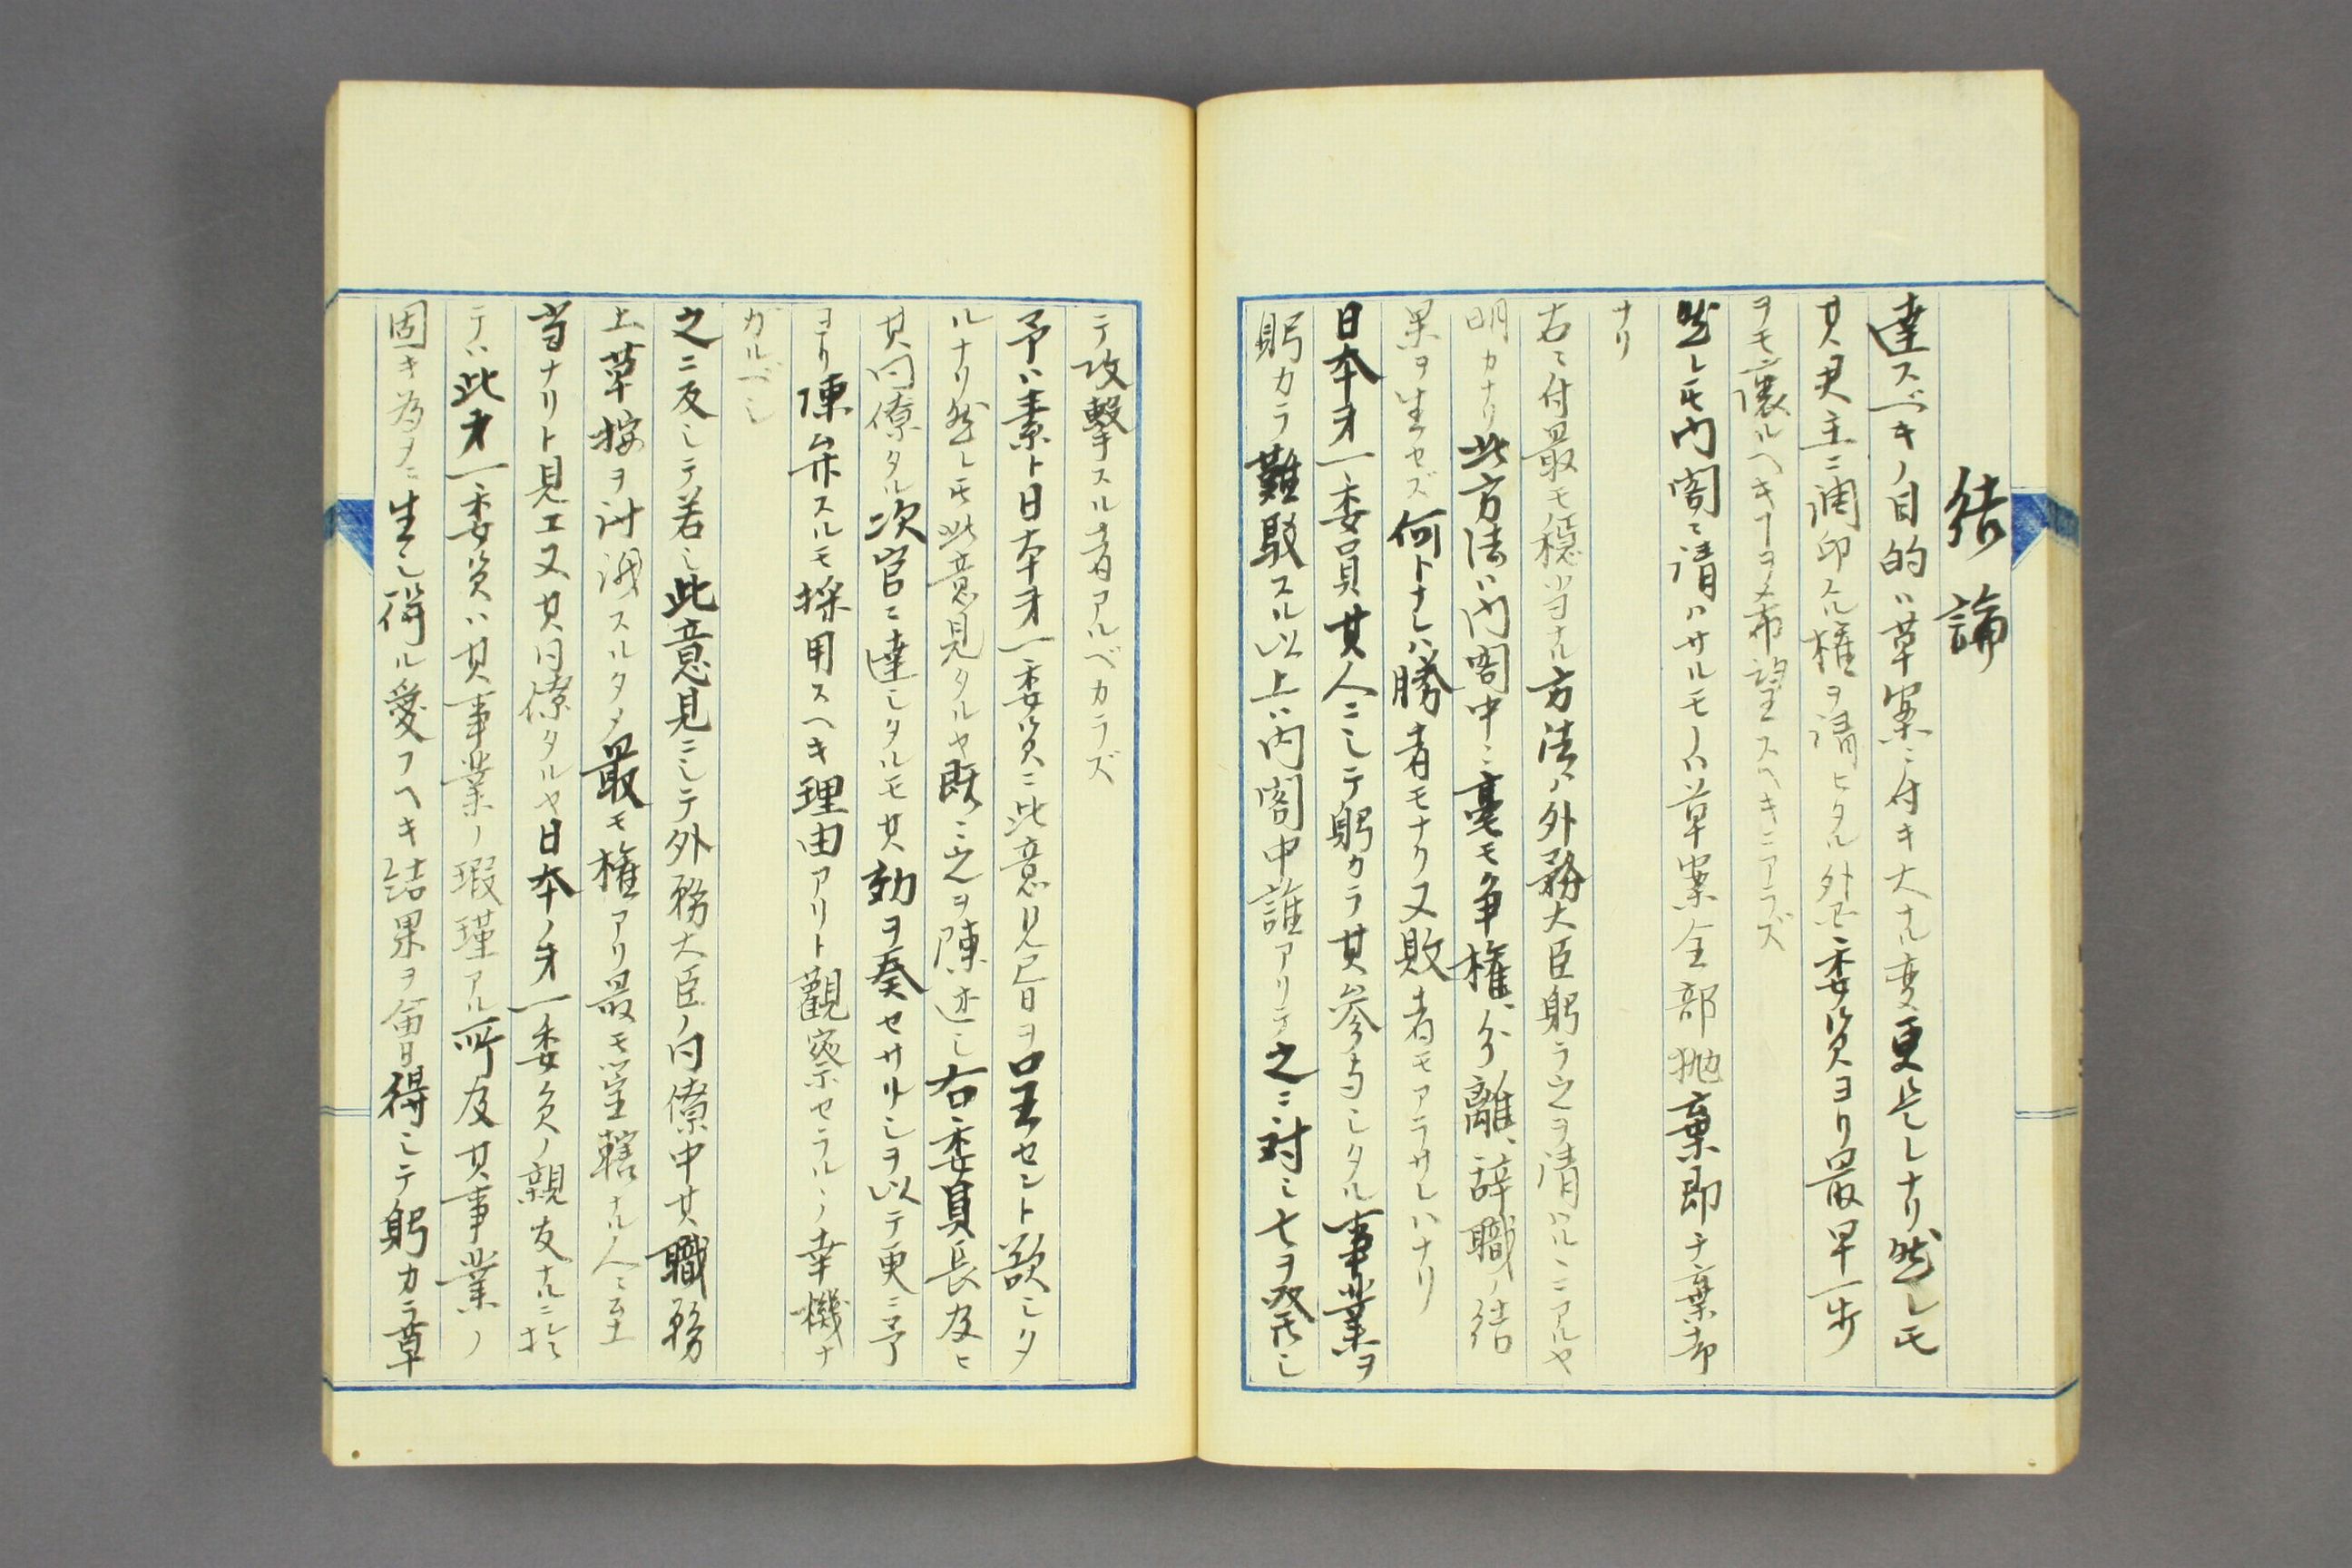 結論
達スベキノ目的ハ草案ニ付キ大ナル変更是レナリ然レ𪜈
其君主ニ調印スル権ヲ請ヒタル外国委員ヨリ最早一歩
ヲモ譲ルヘキヿヲ希望スヘキニアラズ
然レ𪜈内閣ニ請ハサルモノハ草案全部抛棄即チ棄却
ナリ
右ニ付最モ穏当ナル方法ハ外務大臣躬ラ之ヲ請ハルヽニアルヤ
明カナリ此方法ハ内閣中ニ毫モ争権、分離、辞職ノ結
果ヲ生セズ何トナレハ勝者モナク又敗者モアラサレハナリ
日本才一委員其人ニシテ躬カラ其参与シタル事業ヲ
躬カラ難駁スル以上ハ内閣中誰アリテ之ニ対シ七ヲ発シ
テ攻撃スル者アルベカラズ
予ハ素ト日本才一委員ニ此意見書ヲ呈セント欲シタ
ルナリ然レ𪜈此意見タルヤ既ニ之ヲ陳述シ右委員長及ヒ
其同僚タル次官ニ達シタルモ其効ヲ奏セサリシヲ以テ更ニ予
ヨリ陳弁スルモ採用スヘキ理由アリト観察セラルヽノ幸機ナ
カルベシ
之ニ反シテ若シ此意見ニシテ外務大臣ノ同僚中其職務
上草按ヲ討議スルタメ最モ権アリ最モ管轄ナル人ニ至
当ナリト見エ又其同僚タルヤ日本ノ才一委員ノ親友ナルニ於
テハ此才一委員ハ其事業ノ瑕瑾アル所及其事業ノ
固キ為メニ生シ得ル憂フヘキ結果ヲ會得シテ躬カラ草